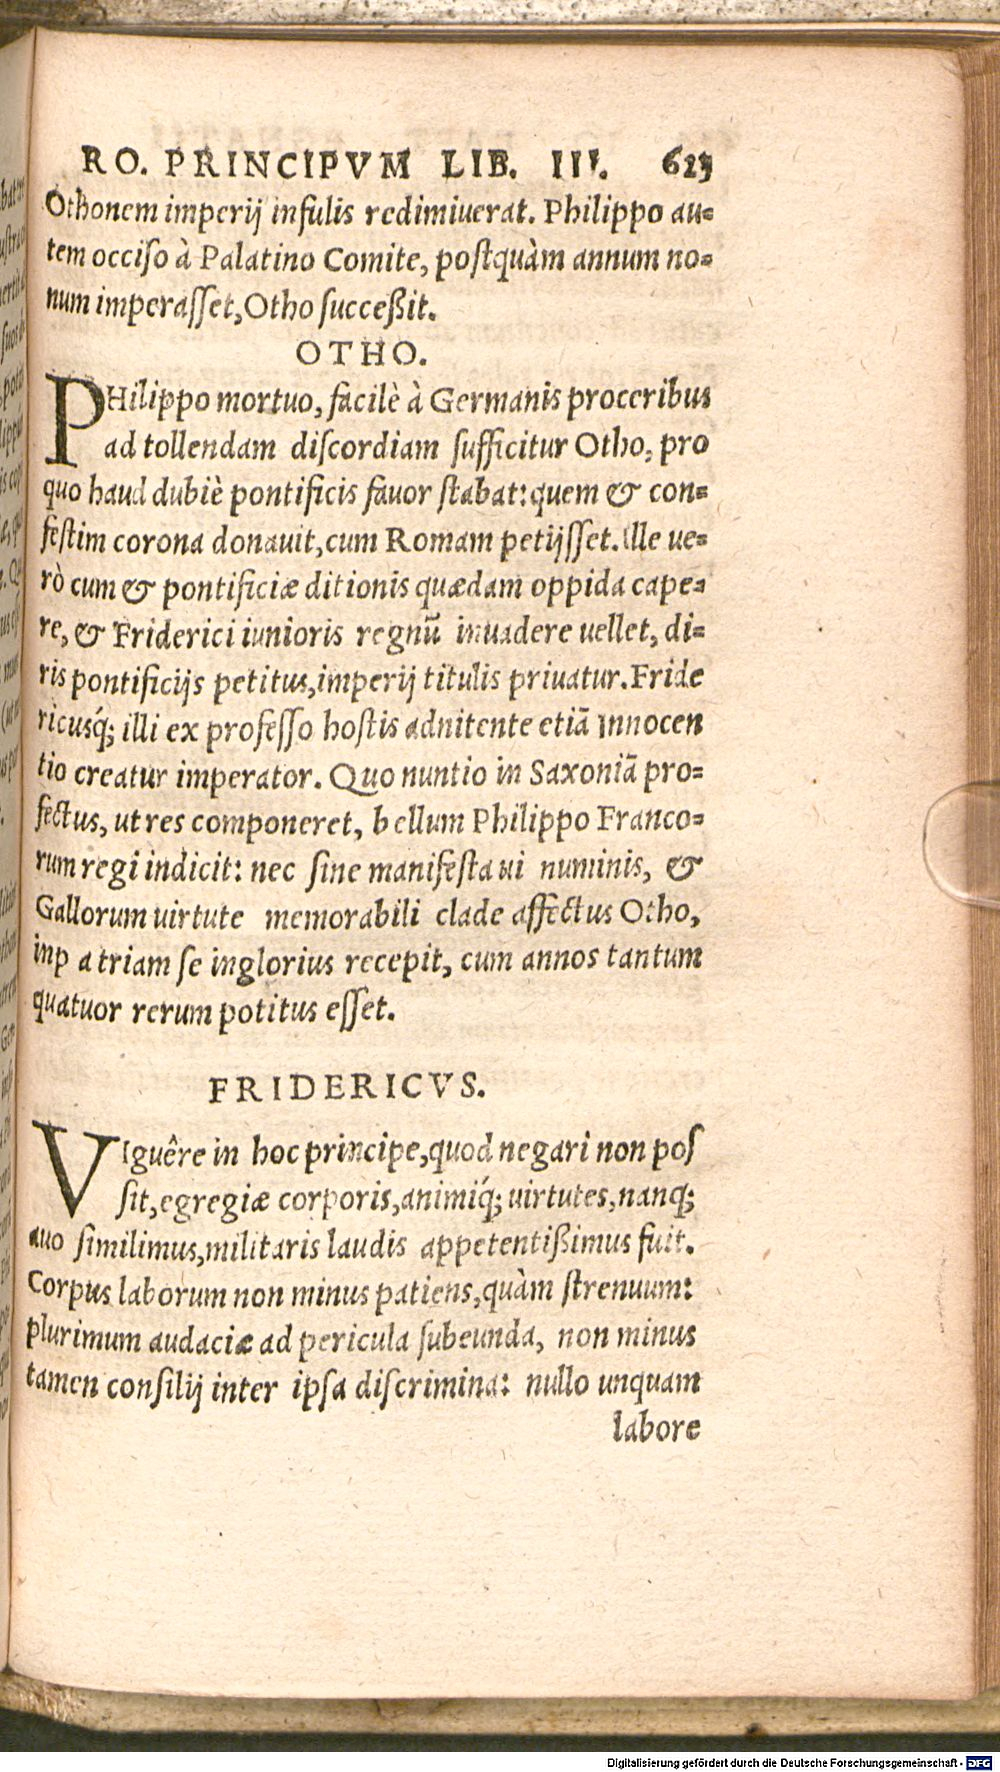 RO. PRINCIPVM LIB. III. 623
Othonem imperij infulis redimiuerat. Philippo au⸗
tem occiso à Palatino Comite, postquàm annum no⸗
num imperasſet, Otho succeßit.
OTHO.
PHilippo mortuo, facilè à Germanis proceribus
ad tollendam discordiam sufficitur Otho, pro
quo haud dubiè pontificis fauor stabat: quem & con⸗
festim corona donauit, cum Romam petijsſet. Ille ue⸗
rò cum & pontificiæ ditionis quædam oppida cape⸗
re, & Friderici iunioris regnũ inuadere uellet, di⸗
ris pontificijs petitus, imperij titulis priuatur. Fride
ricusq́; illi ex professo hostis adnitente etiã Innocen
tio creatur imperator. Quo nuntio in Saxoniã pro⸗
fectus, ut res componeret, bellum Philippo Franco⸗
rum regi indicit: nec sine manifesta ui numinis, &
Gallorum uirtute memorabili clade affectus Otho,
inp atriam se inglorius recepit, cum annos tantum
quatuor rerum potitus esset.
FRIDERICVS.
VIguêre in hoc principe, quod negari non pos
sit, egregiæ corporis, animiq́; uirtutes, nanq́;
auo similimus, militaris laudis appetentißimus fuit.
Corpus laborum non minus patiens, quàm strenuum:
plurimum audaciæ ad pericula subeunda, non minus
tamen consilij inter ipsa discrimina: nullo unquam
labore
Digitalisierung gefördert durch die Deutsche Forschungsgemeinschaft - DFG